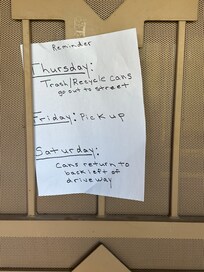 Reminder
Thursday:
Trash/Recycle cans
go out to street
Friday: Pick up
Saturday:
Cans return to
back left of
driveway